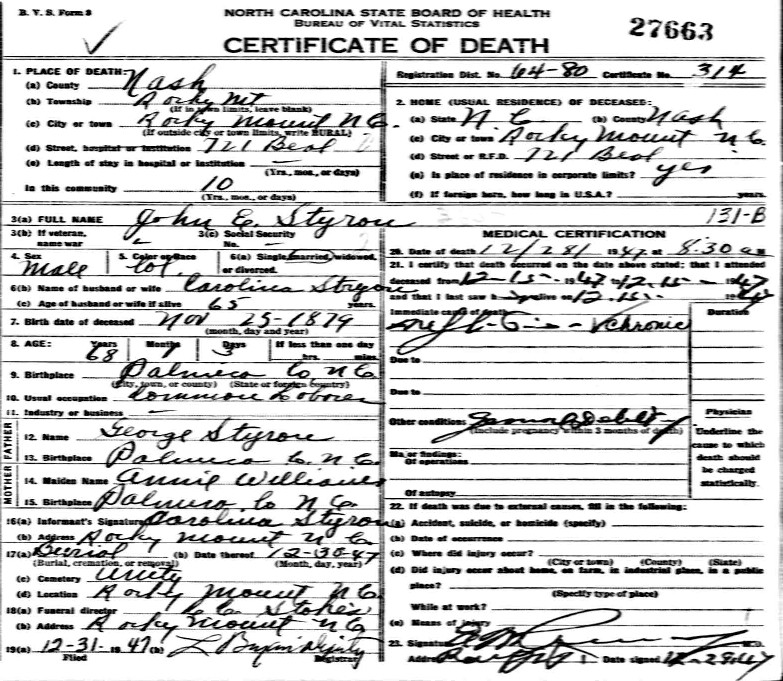 B. V. S. Form 8
NORTH CAROLINA STATE BOARD OF HEALTH
BUREAU OF VITAL STATISTICS
CERTIFICATE OF DEATH
27663
1. PLACE OF DEATH:
(a) County Nash
(b) Township Rocky Mt
(If in town limits, leave blank)
(c) City or town Rocky Mount N C.
(If outside city or town limits, write RURAL)
(d) Street, hospital or institution 721 Beal
(e) Length of stay in hospital or institution —
(Yrs., mos., or days)
In this community 10
(Yrs., mos., or days)
Registration Dist. No. 64-80 Certificate No. 314
2. HOME (USUAL RESIDENCE) OF DECEASED:
(a) State N C. (b) County Nash
(c) City or town Rocky Mount N C.
(d) Street or R.F.D. 721 Beal
(e) Is place of residence in corporate limits? yes
(f) If foreign born, how long in U.S.A.? years.
3(a) FULL NAME John E. Styron
131-B
3(b) If veteran, name war -
3(c) Social Security No. —
4. Sex Male
5. Color or Race Col.
6(a) Single, married, widowed, or divorced.
6(b) Name of husband or wife Carolina Styron
(c) Age of husband or wife if alive 65 years.
7. Birth date of deceased Nov 25-1879
(month, day and year)
8. AGE: Years 68 Months 1 Days 3 If less than one day hrs. mins.
9. Birthplace Palmico Co N C.
(City, town, or county) (State or foreign country)
10. Usual occupation Common Laborer
11. Industry or business —
FATHER
12. Name George Styron
13. Birthplace Palmico Co. N C.
MOTHER
14. Maiden Name Annie Williams
15. Birthplace Palmico Co N C.
16(a) Informant's Signature Carolina Styron
(b) Address Rocky Mount N C.
17(a) Burial (b) Date thereof 12-30-47
(Burial, cremation, or removal) (Month, day, year)
(c) Cemetery Unity
(d) Location Rocky Mount N C.
18(a) Funeral director Stokes
(b) Address Rocky Mount N C.
19(a) 12-31-1947 (b) Deputy
Filed Registrar
MEDICAL CERTIFICATION
20. Date of death 12/28/ 1947 at 8:30 am
21. I certify that death occurred on the date above stated; that I attended
deceased from 12-15- 1947 to 12-15- 1947
and that I last saw h alive on 12-15- 1947
Immediate cause of death Duration
Chronic
Due to
Due to
Other conditions General Debility
(Include pregnancy within 3 months of death)
Major findings:
Of operations
Of autopsy
Physician
Underline the cause to which death should be charged statistically.
22. If death was due to external causes, fill in the following:
(a) Accident, suicide, or homicide (specify)
(b) Date of occurrence
(c) Where did injury occur?
(City or town) (County) (State)
(d) Did injury occur about home, on farm, in industrial place, in a public place?
(Specify type of place)
While at work?
(e) Means of injury
23. Signature M.D.
Address Date signed 12-29-47